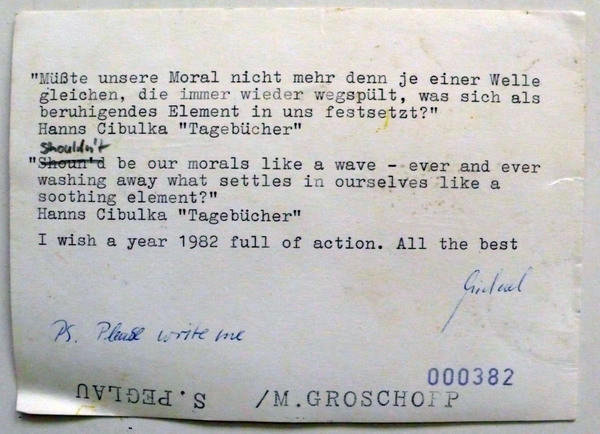 "Müßte unsere Moral nicht mehr denn je einer Welle
gleichen, die immer wieder wegspült, was sich als
beruhigendes Element in uns festsetzt?"
Hanns Cibulka "Tagebücher"
shouldn't
"Shoun'd be our morals like a wave - ever and ever
washing away what settles in ourselves like a
soothing element?"
Hanns Cibulka "Tagebücher"
I wish a year 1982 full of action. All the best
Ps. Please write me
000382
S. PEGLAU /M.GROSCHOPP